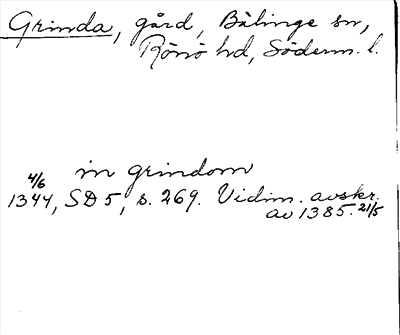 Grinda, gård, Bälinge sn,
Rönö hd, Söderm. l.
in grindom
4/6
1344, SD 5, s. 269. Vidim. avskr.
av 1385. 21/5